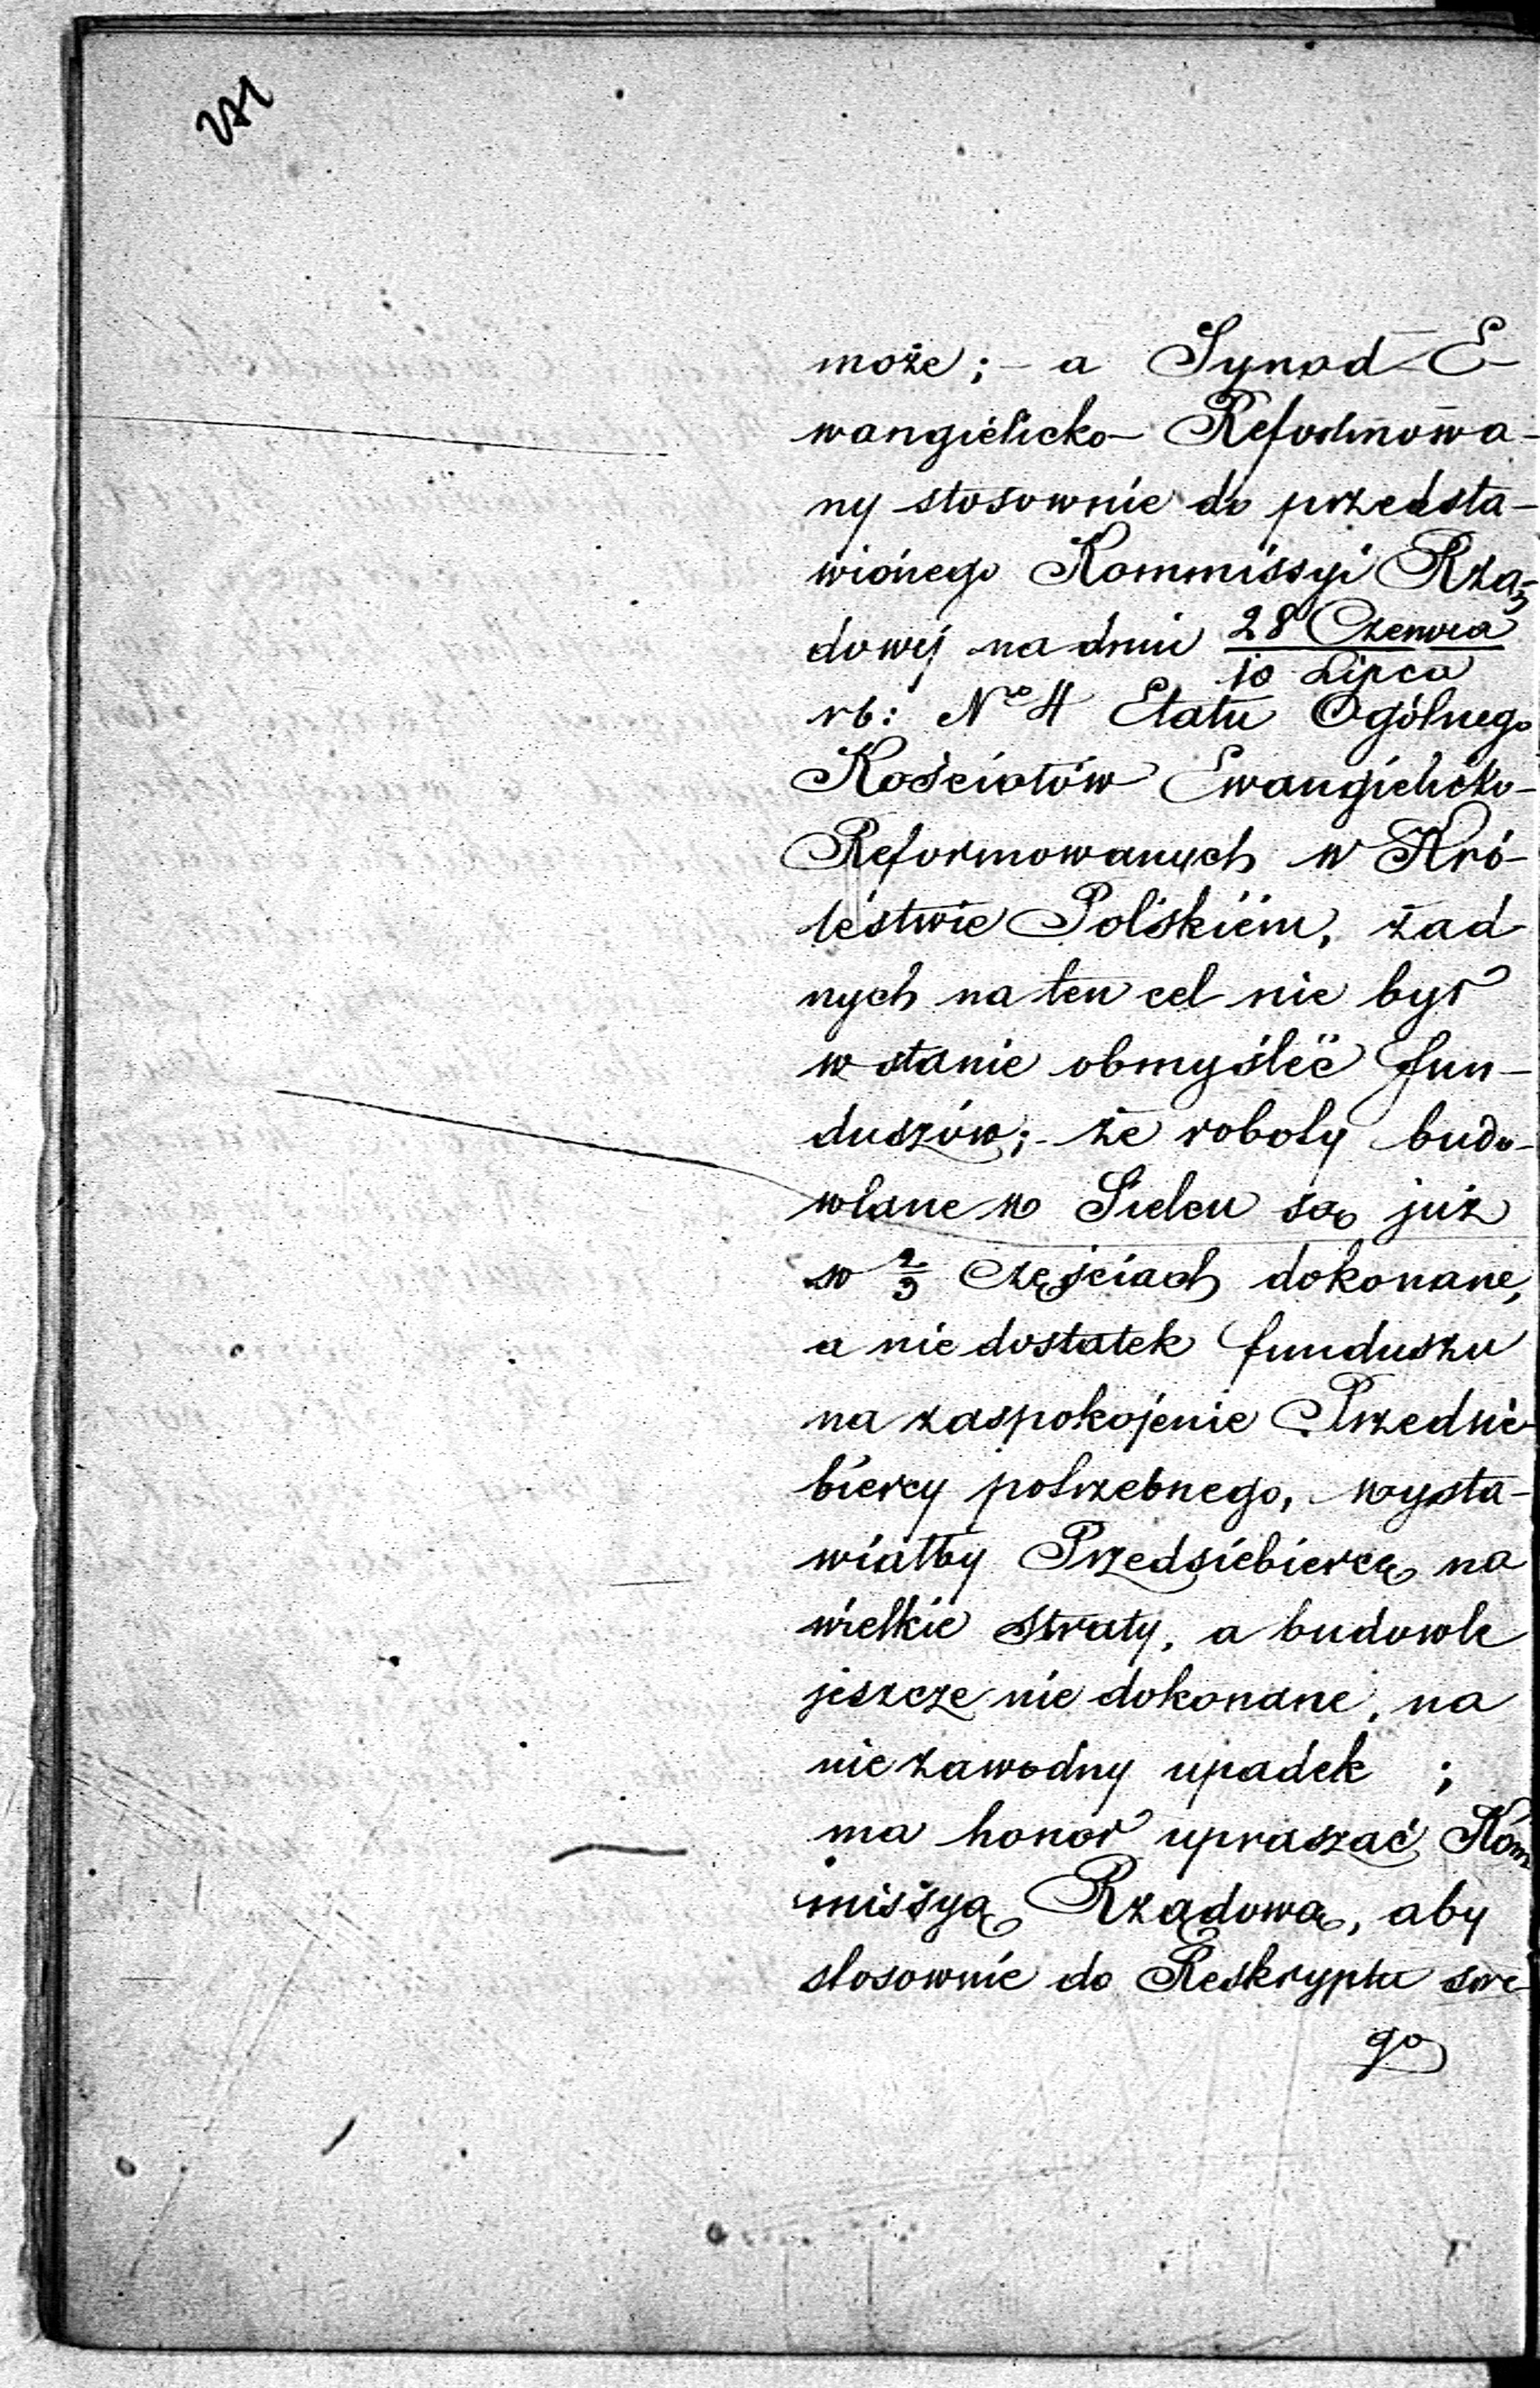 271
może; - a Synod E-
wangielicko- Reformowa-
ny stosownie do przedsta-
wionego Kommissyi Rzą-
dowej na dniu 28 Czerwca
10 Lipca
rb: Nro 4 Etatu Ogólnego
Kościołów Ewangielicko-
Reformowanych w Kró-
lestwie Polskiem, żad
nych na ten cel nie był
w stanie obmyśleć fun-
duszów; - że roboty budo-
wlane w Sielcu są już
w 2/3 częściach dokonane,
a nie dostatek funduszu
na zaspokojenie Przedsię-
biercy potrzebnego, wysta-
wiałby Przedsiebiercę na
wielkie straty, a budowle
jeszcze nie dokonane, na
nie zawodny upadek ;
ma honor upraszać Kom
missyą Rządową, aby
stosownie do Reskryptu swe-
go